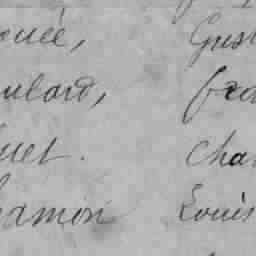 ouée, Gust
oulard, fred
uet. Cha
hamon Louis